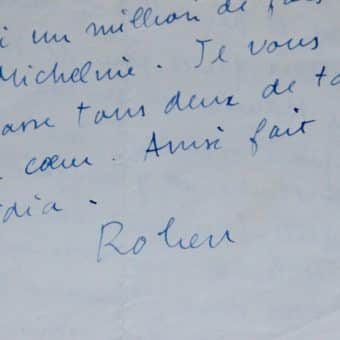 i un million de fois
Michelnie. Je vous
asse tous deux de to
cœur. Ainsi fait
dia.
Robert